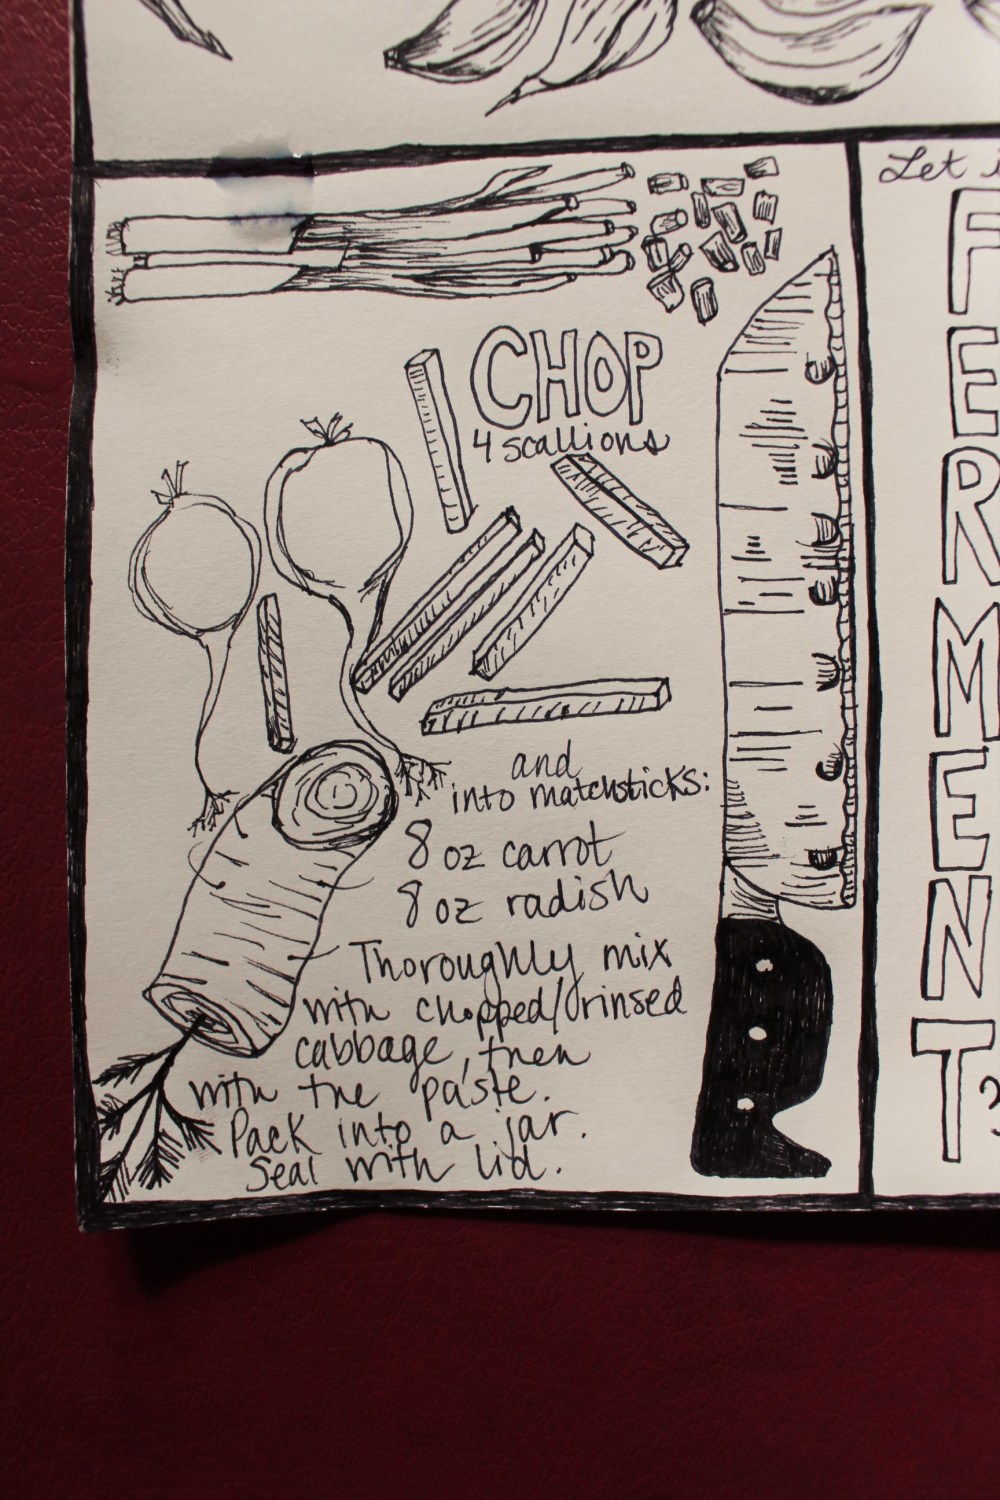 CHOP
4 scallions
and
into matchsticks:
8 oz carrot
8 oz radish
Thoroughly mix
with chopped/rinsed
cabbage, then
with the paste.
Pack into a jar.
Seal with lid.
Let
FERMENT